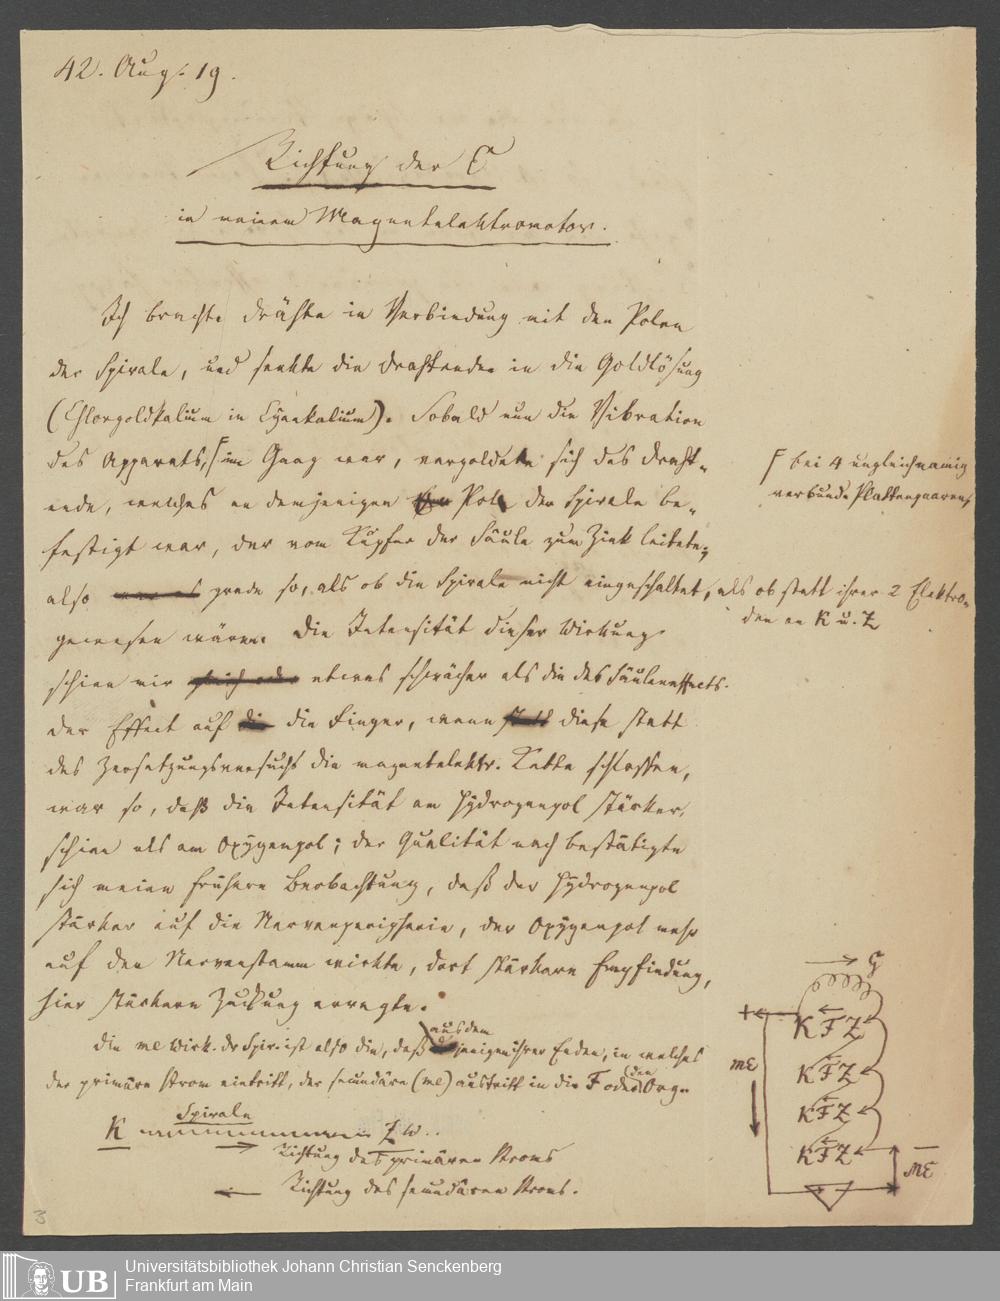 42. Aug. 19.
Richtung der C
in meinem Magnetelektromotor.
Ich brachte Drähte in Verbindung mit den Polen
der Spirale, und senkte die Drahtenden in die Goldlösung
(Chlorgoldkalium in Cyankalium). Sobald nun die Vibration
des Apparats, im Gang war, vergoldete sich das Draht-
ende, welches an demjenigen Pol der Spirale be-
festigt war, der vom Kupfer der Säule zum Zink leitete;
also grade so, als ob die Spirale nicht eingeschaltet, als ob statt ihrer 2 Elektro-
den an K u. Z
gewesen wären. Die Intensität dieser Wirkung
schien mir etwas schwächer als die des Säuleneffects.
Der Effect auf die Finger, wenn diese statt
des Zersetzungsversuchs die magnetelektr. Kette schlossen,
war so, daß die Intensität am Hydrogenpol stärker
schien als am Oxygenpol; der Qualität nach bestätigte
sich meine frühere Beobachtung, daß der Hydrogenpol
stärker auf die Nervenperipherie, der Oxygenpol mehr
auf den Nervenstamm wirkte, dort stärkere Empfindung,
hier stärkere Zuckung erregte.
Die me Wirk. dr Spir. ist also die, daß aus dem
jenigen ihrer Enden, in welches
der primäre Strom eintritt, der secundäre (me) austritt in die F oder den Org.
Spirale
K Z
Richtung des primären Stroms
Richtung des secundären Stroms.
bei 4 ungleichnamig
verbunde Plattenpaaren,
G
+
K F Z
mE
K F Z
K F Z
K F Z
mE
3
UB
Universitätsbibliothek Johann Christian Senckenberg
Frankfurt am Main